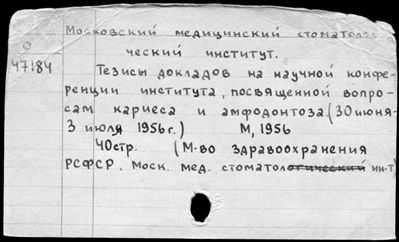 Московский медицинский стоматоло
О
ческий институт.
47184
Тезисы докладов на научной конфе-
ренции института, посвященной вопро-
сам кариеса и амфодонтоза (30 июня-
3 июля 1956 г.) М, 1956
40стр. (М-во здравоохранения
РСФСР. Моск. мед. стоматологический ин-т)